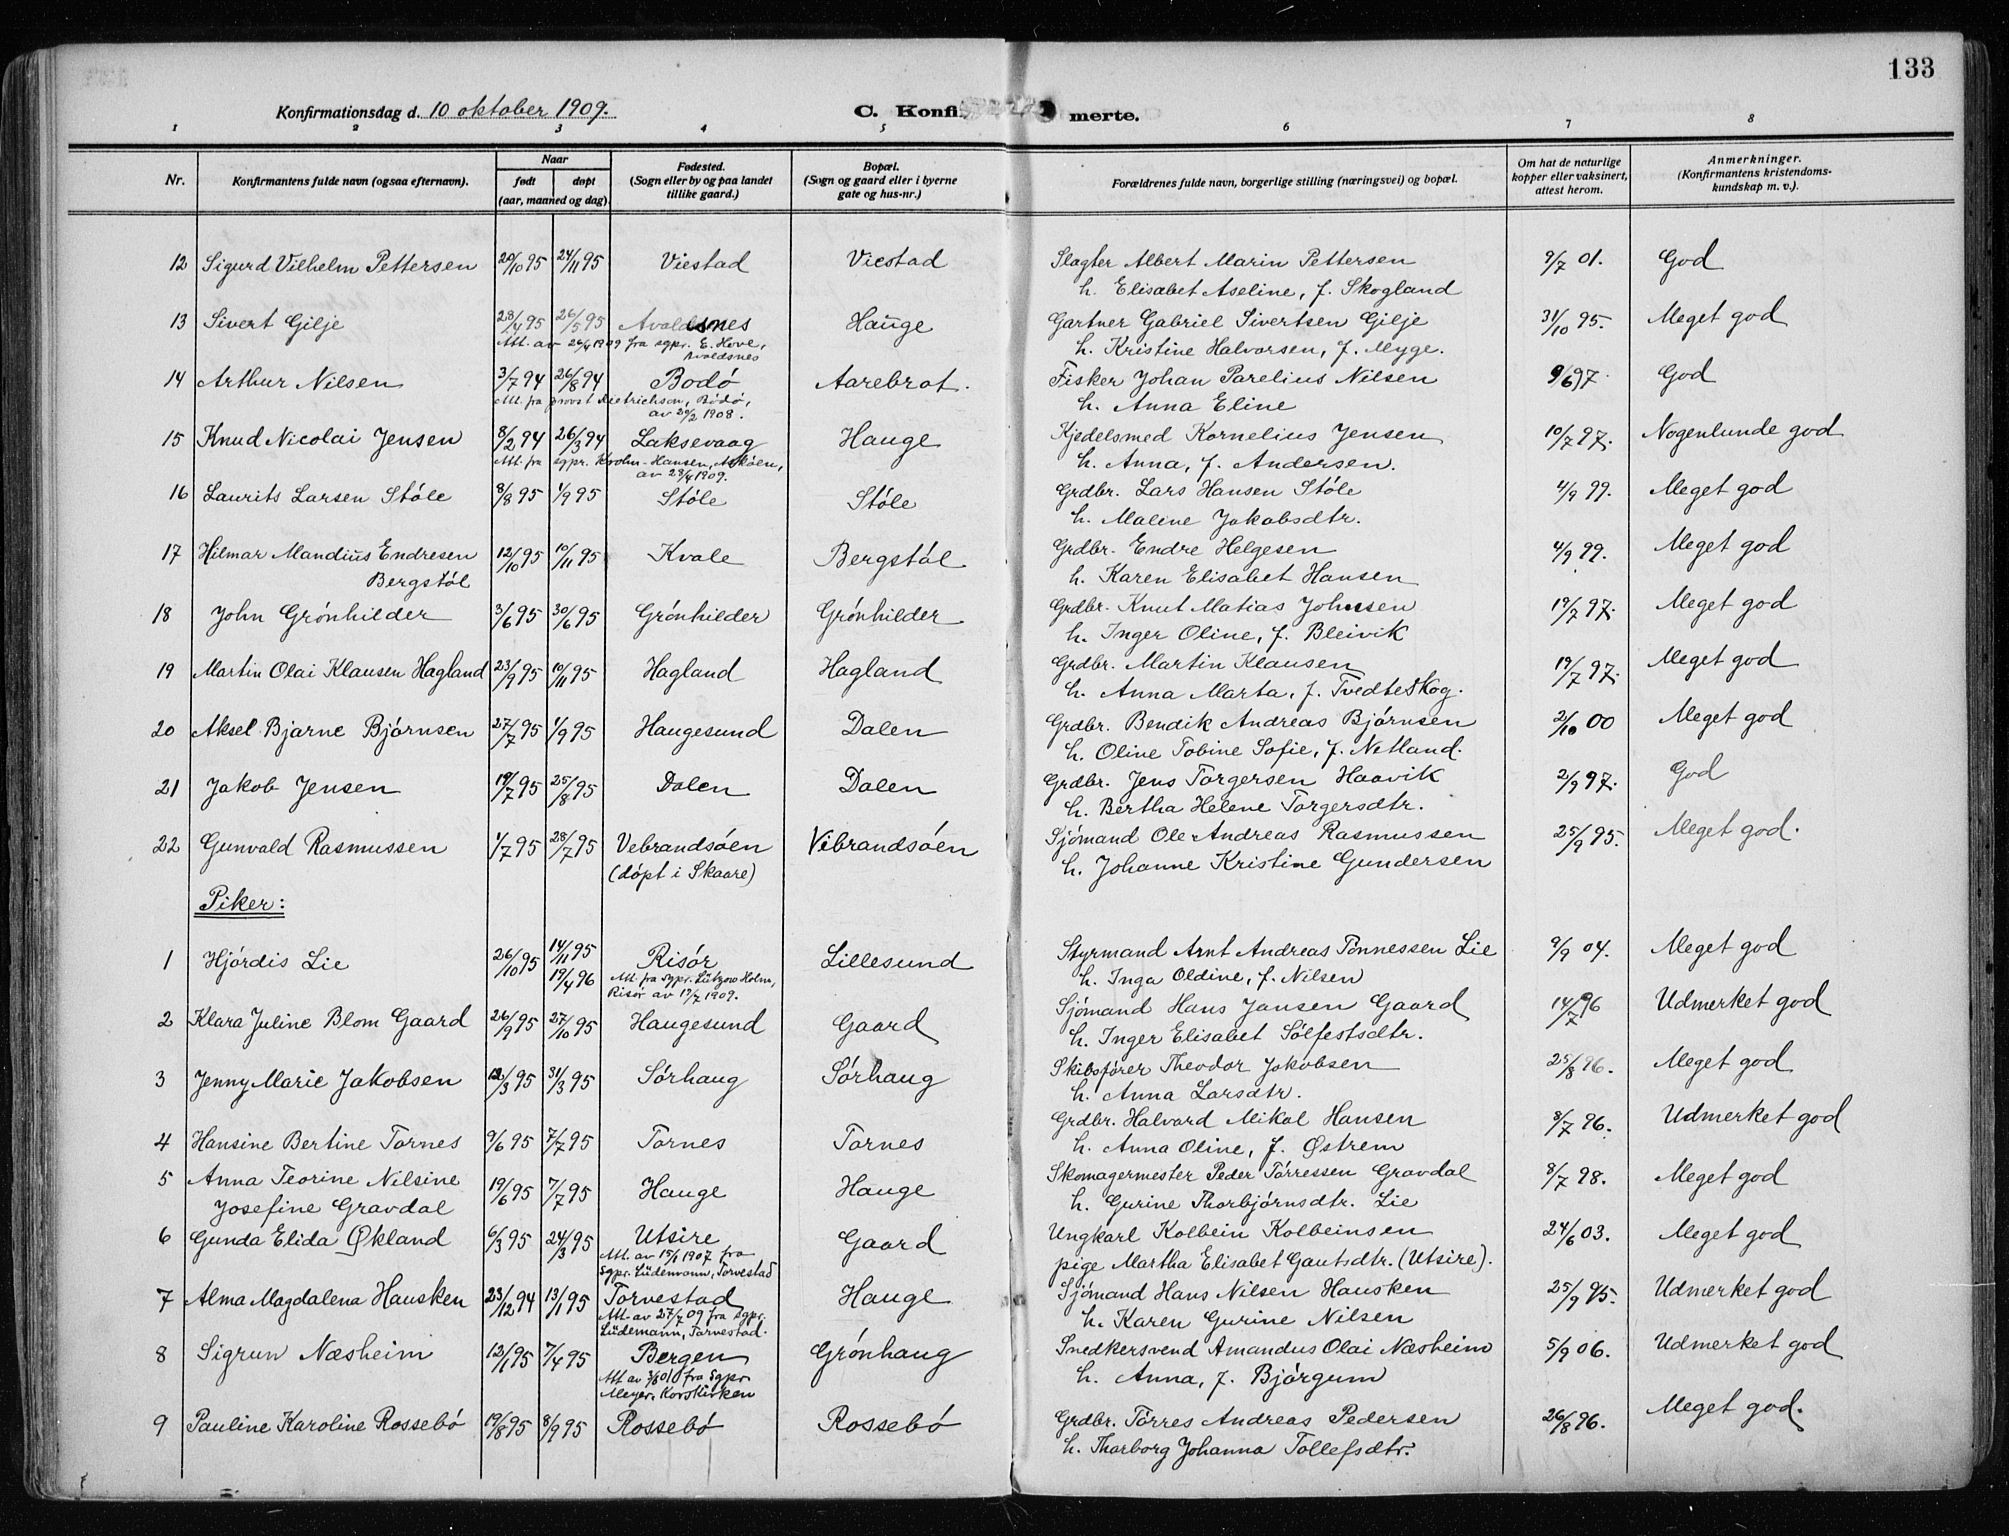 133
Konfirmationsdag d. 10 oktober 1909.
C. Konfirmerte.
1 2 3 4 5 6 7 8
Nr.
Konfirmantens fulde navn (ogsaa efternavn).
Naar
født døpt
(aar, maaned og dag)
Fødested.
(Sogn eller by og paa landet
tillike gaard.)
Bopæl.
(Sogn og gaard eller i byerne
gate og hus-nr.)
Forældrenes fulde navn, borgerlige stilling (næringsvei) og bopæl.
Om hat de naturlige
kopper eller vaksinert,
attest herom.
Anmerkninger.
(Konfirmantens kristendoms-
kundskap m. v.).
12 Sigurd Vilhelm Pettersen 20/10 95 24/11 95 Viestad Viestad Slagter Albert Marin Pettersen 9/7 01. God
h. Elisabet Aseline, f. Skogland
13 Sivert Gilje 28/4 95 26/5 95 Avaldsnes Hauge Gartner Gabriel Sivertsen Gilje 31/10 95. Meget god
Att. av 26/4 1909 fra sgpr. E. Hove, h. Kristine Halvorsen, f. Myge.
Avaldsnes
14 Arthur Nilsen 3/7 94 26/8 94 Bodö Aarebrot. Fisker Johan Parelius Nilsen 9/6 97. God
Att. fra provst Dietrichson, Bödö, h. Anna Eline
av 20/2 1908.
15 Knud Nicolai Jensen 8/2 94 26/3 94 Laksevaag Hauge Kjedelsmed Kornelius Jensen 10/7 97. Nogenlunde god
Att. fra sgpr. Krohn-Hansen, Asköen, h. Anna, f. Andersen.
av 28/4 1909.
16 Laurits Larsen Stöle 8/8 95 1/9 95 Stöle Stöle Grdbr. Lars Hansen Stöle 4/9 99. Meget god
h. Maline Jakobsdtr.
17 Hilmar Mandius Endresen 12/10 95 10/11 95 Kvale Bergstöl Grdbr. Endre Helgesen 4/9 99. Meget god
Bergstöl h. Karen Elisabet Hansen
18 John Grönhilder 3/6 95 30/6 95 Grönhilder Grönhilder Grdbr. Knut Matias Johnsen 19/7 97. Meget god
h. Inger Oline, f. Bleivik
19 Martin Olai Klausen Hagland 23/9 95 10/11 95 Hagland Hagland Grdbr. Martin Klausen 19/7 97. Meget god
h. Anna Marta, f. Tvedteskog.
20 Aksel Bjarne Björnsen 27/7 95 1/9 95 Haugesund Dalen Grdbr. Bendik Andreas Björnsen 2/10 00 Meget god
h. Oline Tobine Sofie, f. Netland.
21 Jakob Jensen 19/7 95 25/8 95 Dalen Dalen Grdbr. Jens Torgersen Haavik 2/9 97. God
h. Bertha Helene Torgersdtr.
22 Gunvald Rasmussen 1/7 95 28/7 95 Vebrandsöen Vibrandsöen Sjömand Ole Andreas Rasmussen 25/9 95. Meget god.
(döpt i Skaare) h. Johanne Kristine Gundersen
Piker:
1 Hjördis Lie 26/10 95 14/11 95 Risör Lillesund Styrmand Arnt Andreas Tönnessen Lie 9/9 04. Meget god
19/4 96 Att. fra sgpr. Lützow Holm, h. Inga Oldine, f. Nilsen
Risör av 17/7 1909.
2 Klara Juline Blom Gaard 26/9 95 27/10 95 Haugesund Gaard Sjömand Hans Jansen Gaard 14/7 96 Udmerket god
h. Inger Elisabet Sölfestsdtr.
3 Jenny Marie Jakobsen 12/3 95 31/3 95 Sörhaug Sörhaug Skibsfører Theodor Jakobsen 25/8 96. Meget god
h. Anna Larsdtr.
4 Hansine Bertine Tornes 9/6 95 7/7 95 Tornes Tornes Grdbr. Halvard Mikal Hansen 8/7 96. Udmerket god
h. Anna Oline, f. Østrem
5 Anna Teorine Nilsine 19/6 95 7/7 95 Hauge Hauge Skomagermester Peder Törressen Gravdal 8/7 98. Meget god
Josefine Gravdal h. Gurine Thorbjörnsdtr. Lie
6 Gunda Elida Økland 6/3 95 24/3 95 Utsire Gaard Ungkarl Kolbein Kolbeinsen 24/6 03. Meget god
Att. av 15/1 1907 fra pige Martha Elisabet Gautsdtr. (Utsire).
sgpr. Lüdemann, Torvestad
7 Alma Magdalena Hausken 23/12 94 13/1 95 Torvestad Hauge Sjömand Hans Nilsen Hausken 25/9 95. Udmerket god
Att. av 27/7 09 fra sgpr. h. Karen Gurine Nilsen
Lüdemann, Torvestad.
8 Sigrun Næsheim 12/1 95 7/4 95 Bergen Grönhaug Snedkersvend Amandus Olai Næsheim 5/9 06. Udmerket god
Att av 3/6 01 fra Sgpr. h. Anna, f. Björgum
Meyer, Korskirken
9 Pauline Karoline Rossebö 19/8 95 8/9 95 Rossebö Rossebö Grdbr. Törres Andreas Pedersen 26/8 96. Meget god.
h. Thorborg Johanna Tollefsdtr.